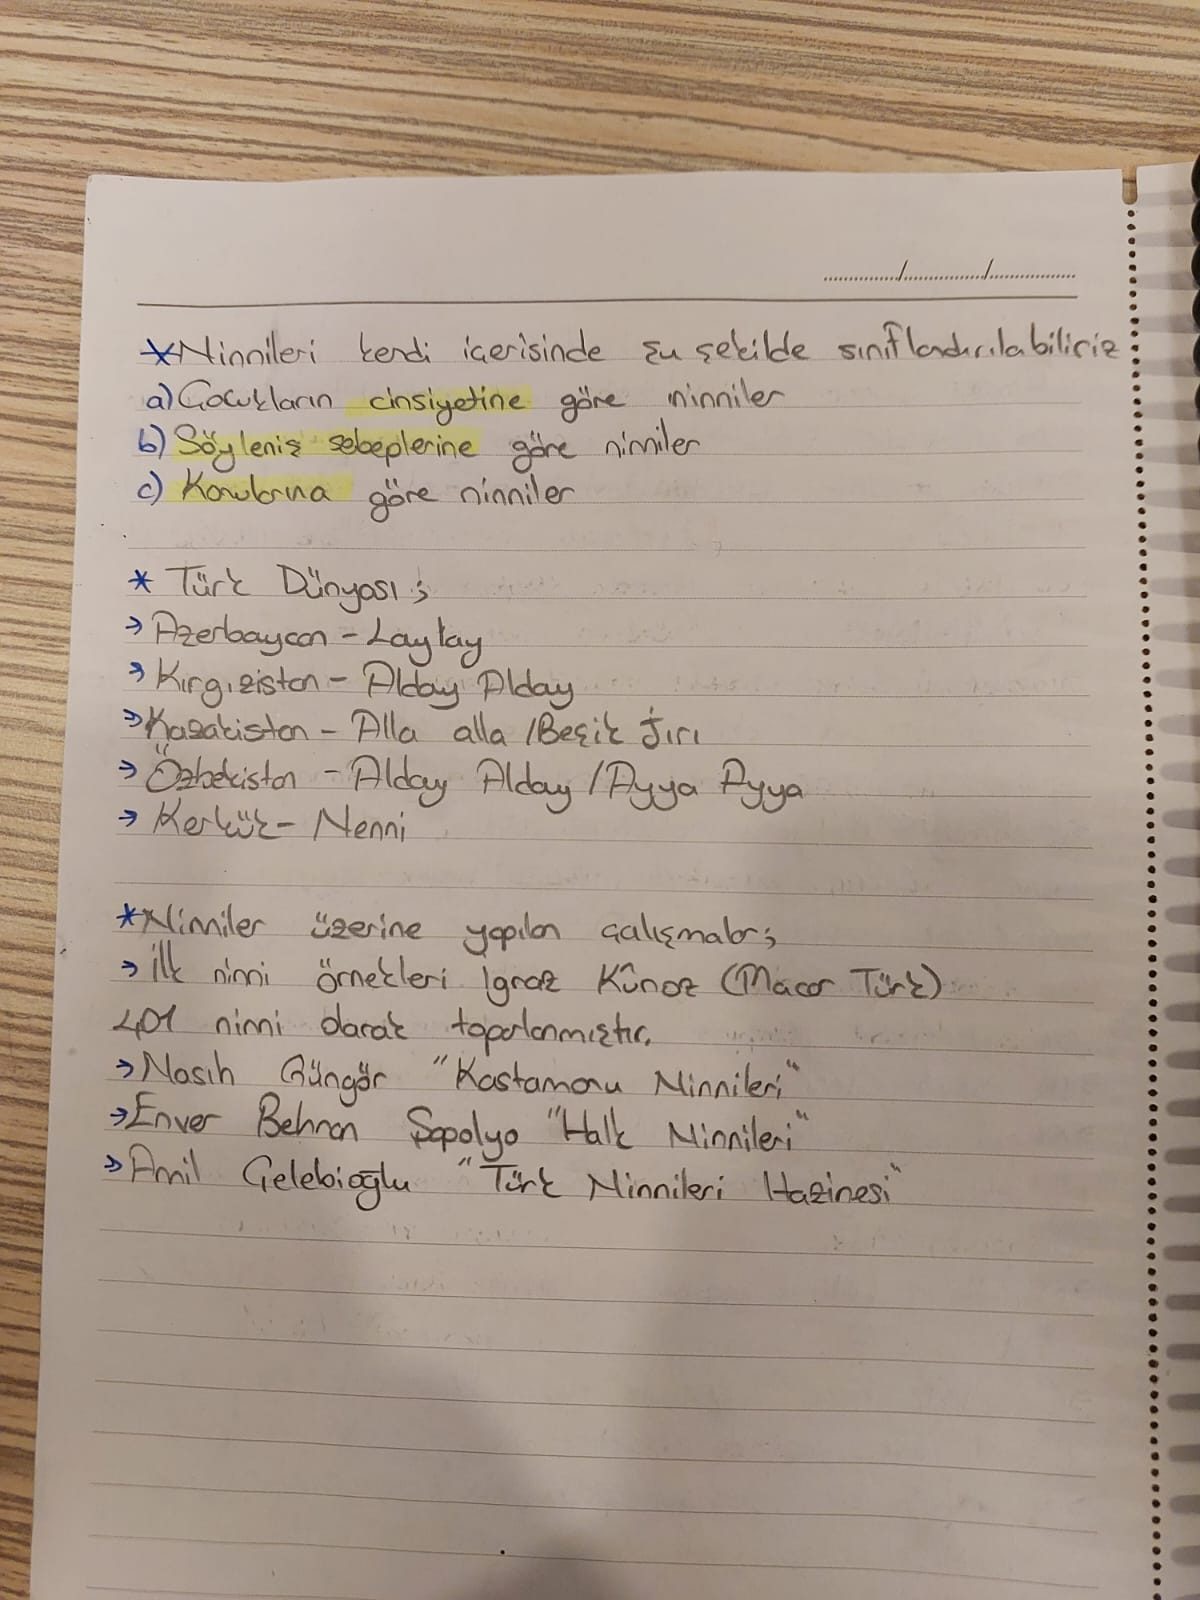 *Ninnileri kendi içerisinde şu şekilde sınıflandırılabiliriz:
a) Çocukların cinsiyetine göre ninniler
b) Söyleniş sebeplerine göre ninniler
c) Konularına göre ninniler
* Türk Dünyası;
→ Azerbaycan - Laylay
→ Kırgızistan - Alday Alday
→ Kazakistan - Alla alla / Beşik Jırı
→ Özbekistan - Alday Alday / Ayya Ayya
→ Kerkük - Nenni
*Ninniler üzerine yapılan çalışmalar;
→ İlk ninni örnekleri Ignaz Kûnoz (Macar Türk)
401 ninni olarak toparlanmıştır.
→ Nasıh Güngör "Kastamonu Ninnileri"
→ Enver Behnan Şapolyo "Halk Ninnileri"
→ Amil Çelebioğlu "Türk Ninnileri Hazinesi"